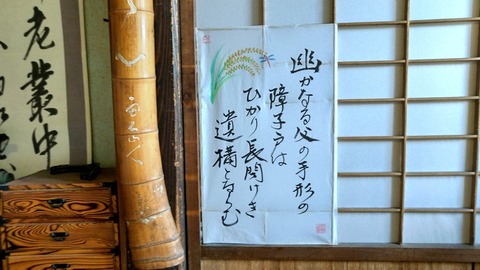 幽かなる父の手形の
障子戸は
ひかり長閑けき
遺構とならむ
老叢中